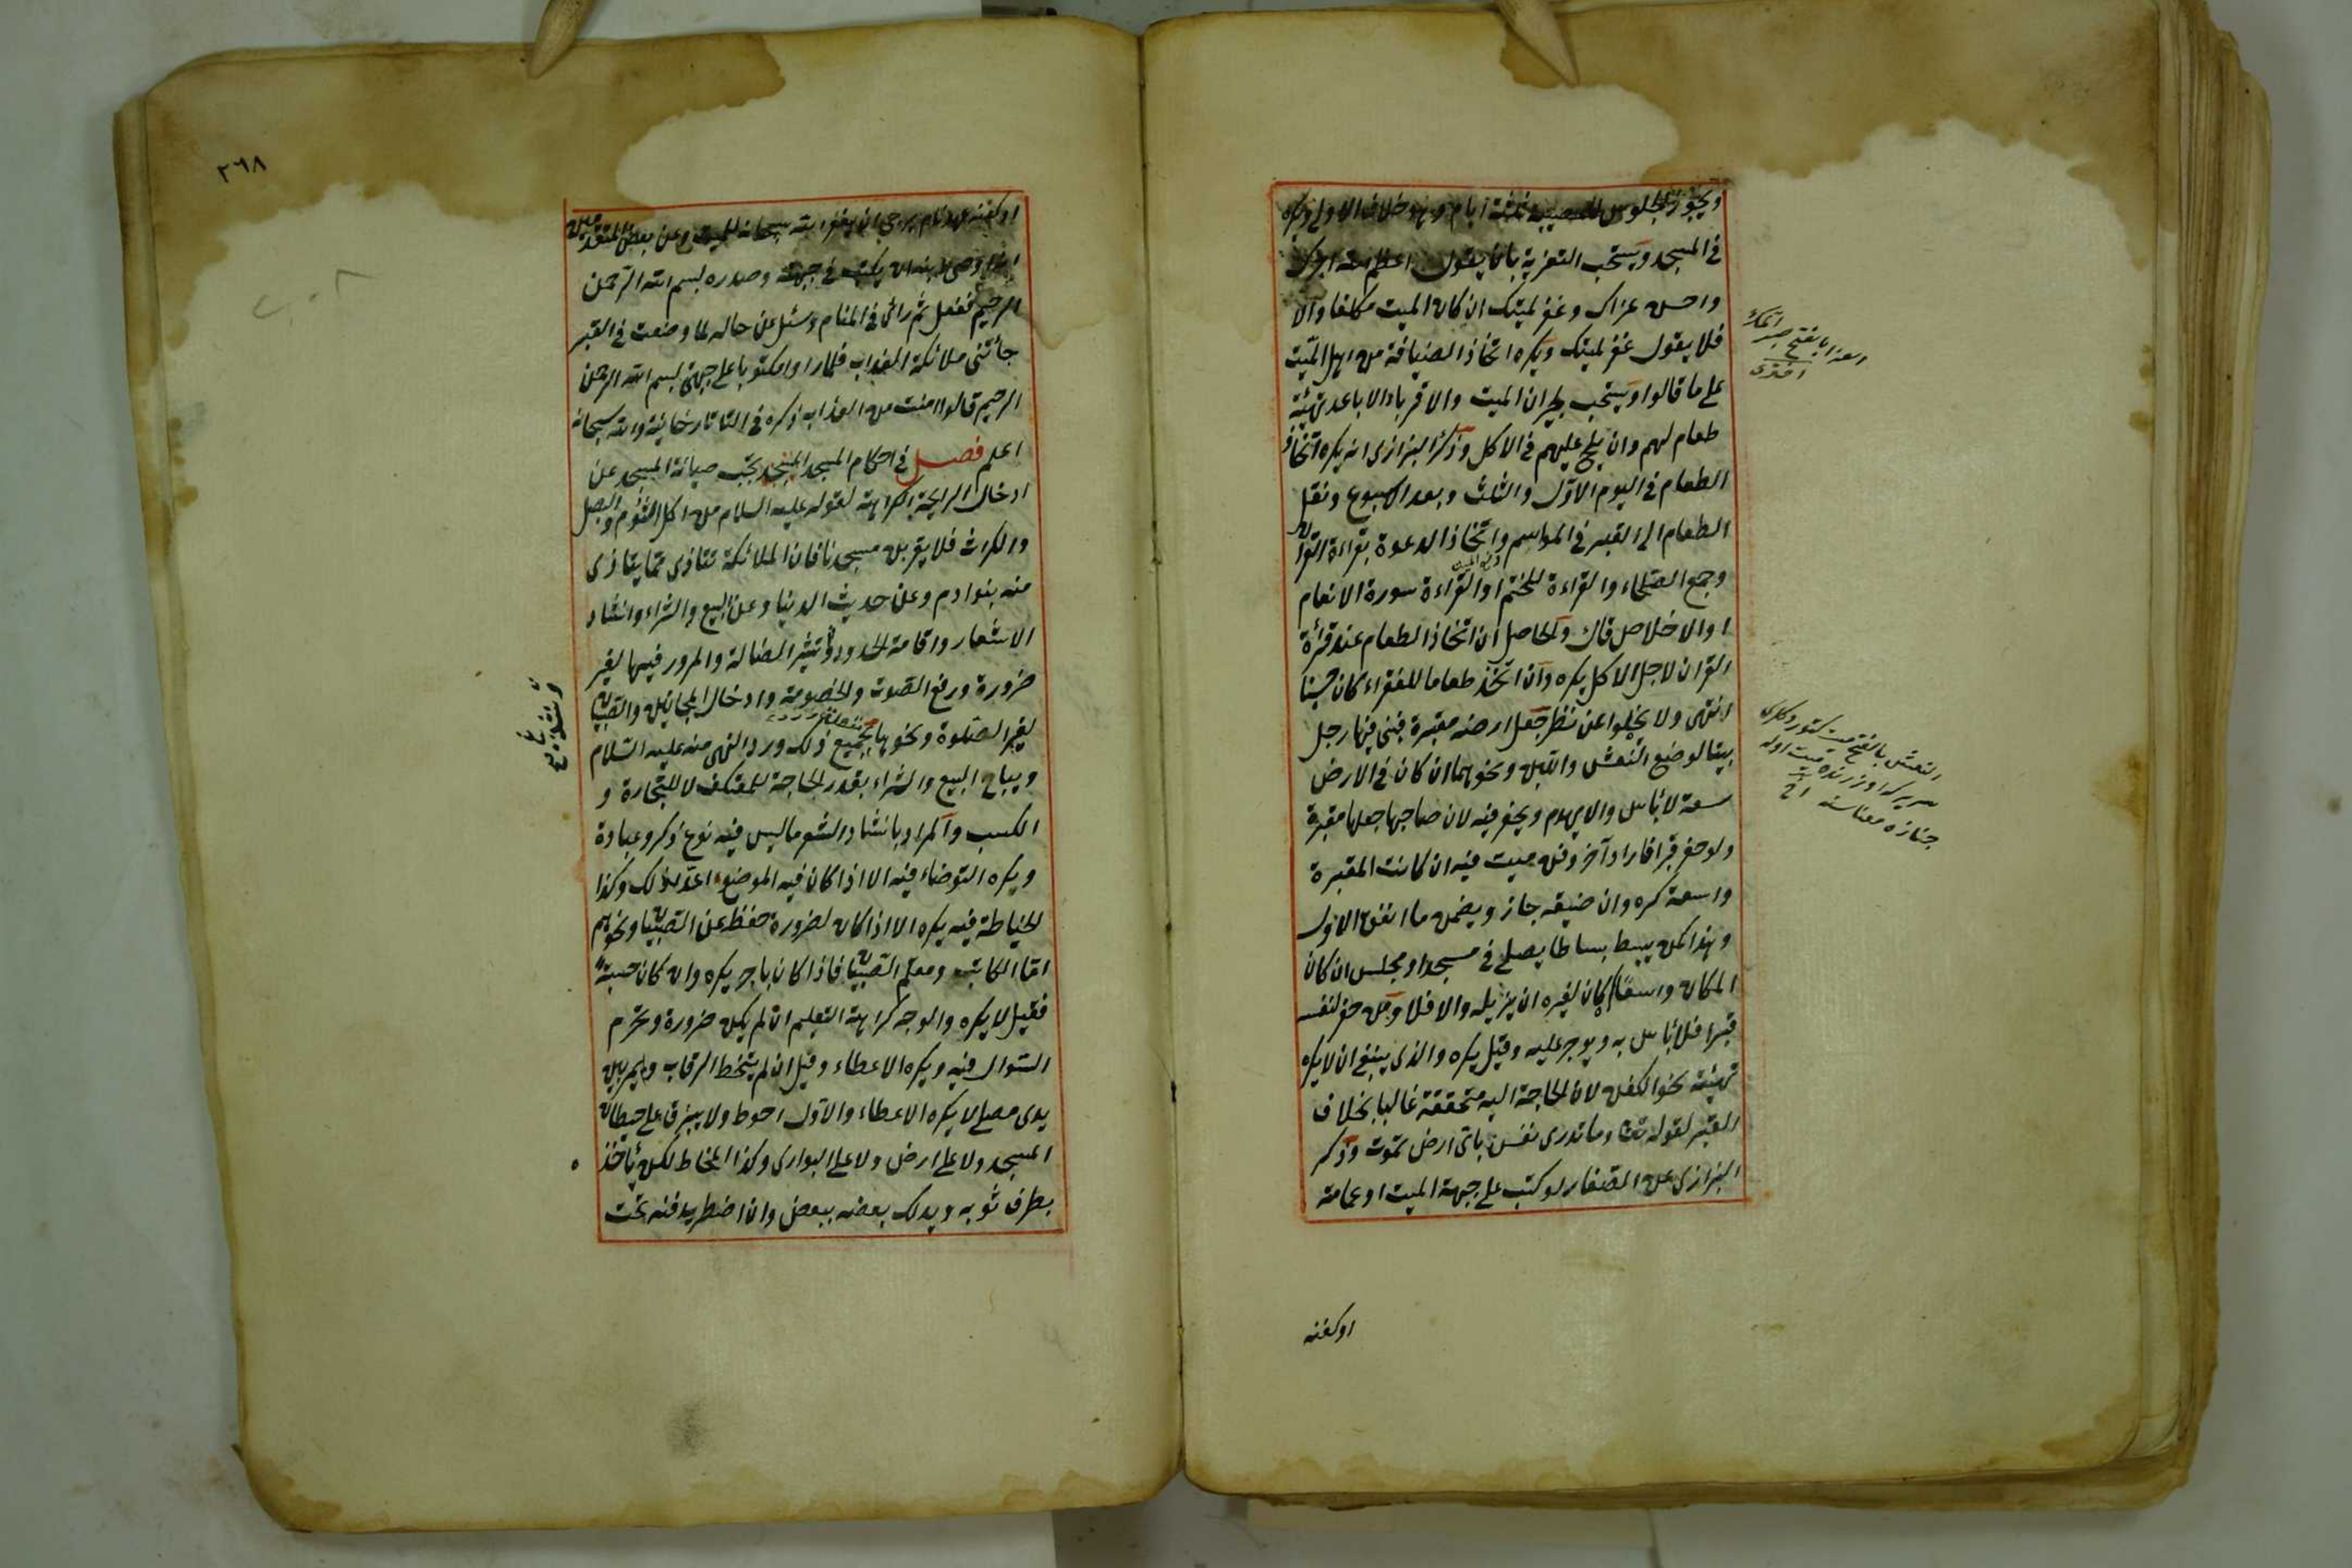 ويجوز الجلوس للمصيبة ثلثة ايام وهو خلاف الاولى ويكره
في المسجد ويستحب التعزية بان يقول اعظم الله اجرك
واحسن عزاك وغفر لميتك ان كان الميت مكلفا والا
فلا يقول غفر لميتك ويكره اتخاذ الضيافة من اهل الميت
على ما قالوا ويستحب لجيران الميت والاقرباء الاباعد تهيئة
طعام لهم وان يلح عليهم في الاكل وذكر البزازى انه يكره اتخاذ
الطعام في اليوم الاول والثالث وبعد الاسبوع ونقل
الطعام الى القبر في المواسم واتخاذ الدعوة بقراءة القران
وجمع الصلحاء والقراءة للختم او القراءة سورة الانعام
او الاخلاص قال والحاصل ان اتخاذ الطعام عند قرأة
القران لاجل الاكل يكره وان اتخذ طعاما للفقراء كان حسنا
انتهى ولا يخلوا عن نظر جعل ارضه مقبرة فبنى فيها رجل
بيتا لوضع النعش واللبن ونحوهما ان كان في الارض
سعة لا بأس والا يهدم ويحفر فيه لان صاحبها جعلها مقبرة
ولو حفر قبرا فاراد آخر دفن ميت فيه ان كانت المقبرة
واسعة كره وان ضيقة جاز ويضمن ما انفق الاول
وهذا كمن يبسط بساطا يصلى في مسجد او مجلس ان كان
المكان واسعا لا كان لغيره ان يزيله والا فلا ومن حفر لنفسه
قبرا فلا بأس به ويوجر عليه وقيل يكره والذى ينبغى ان لا يكره
تهيئة نحو الكفن لان الحاجة اليه متحققة غالبا بخلاف
القبر لقوله تعالى وما تدرى نفس باى ارض تموت وذكر
البزازى عن الصفار لو كتب على جبهة الميت او عمامته
العزا بالفتح صبر اتمك
اختري
النعش بالفتح
جنازه معناسنه اخ
اوكفنه
٣٦٨
او كفنه عهد نامه يرجى ان يغفر الله سبحانه للميت وعن بعض المتقدمين
انه اوصى ابنه ان يكتب في جبهته وصدره بسم الله الرحمن
الرحيم ففعل ثم رائى في المنام وسئل عن حاله لما وضعت في القبر
جأتنى ملائكة العذاب فلما راوا مكتوبا على جبهتى بسم الله الرحمن
الرحيم قالوا امنت من العذاب ذكره في التاتارخانية والله سبحانه
اعلم فصل في احكام المسجد يجب صيانة المسجد عن
ادخال الرايحة الكراهة لقوله عليه السلام من اكل الثوم والبصل
والكراث فلا يقربن مسجدنا فان الملائكة تتاذى مما يتاذى
منه بنو ادم وعن حديث الدنيا وعن البيع والشراء وانشاد
الاشعار واقامة الحدود ونشد الضالة والمرور فيها لغير
ضرورة ورفع الصوت والخصومة وادخال المجانين والصبيان
لغير الصلوة ونحوها لجميع ذلك ورد النهى منه عليه السلام
ويباح البيع والشراء بقدر الحاجة للمعتكف لا للتجارة و
الكسب والمراد بانشاد الشعر ما ليس فيه نوع ذكر وعبادة
ويكره التوضاء فيه الا اذا كان فيه الموضع اعد لذلك وكذا
الخياطة فيه يكره الا اذا كان لضرورة حفظ عن الصبيان ونحوهم
اما الكاتب ومعلم الصبيان فاذا كان باجر يكره وان كان حسبة
فقيل لا يكره والوجه كراهة التعليم ان لم يكن ضرورة ويحرم
السئوال فيه ويكره الاعطاء وقيل ان لم يتخط الرقاب ولم يمر بين
يدى مصلى لا يكره الاعطاء والاول احوط ولا يبزق على حيطان
المسجد ولا على ارض ولا على البوارى وكذا المخاط لكن يأخذ
بطرف ثوبه ويدلك بعضه ببعض وان اضطر يدفنه تحت